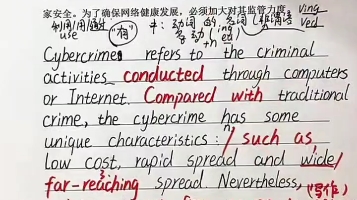 家安全。为了确保网络健康发展，必须加大对其监管力度。 ving
利用/用/通过 "的" 中: 动词 的 名词 ved
use ing
ed
Cybercrime refers to the criminal
activities conducted through computers
or Internet. Compared with traditional
crime, the cybercrime has some
unique characteristics: / such as
low cost, rapid spread and wide/
far-reaching spread. Nevertheless, (写作)